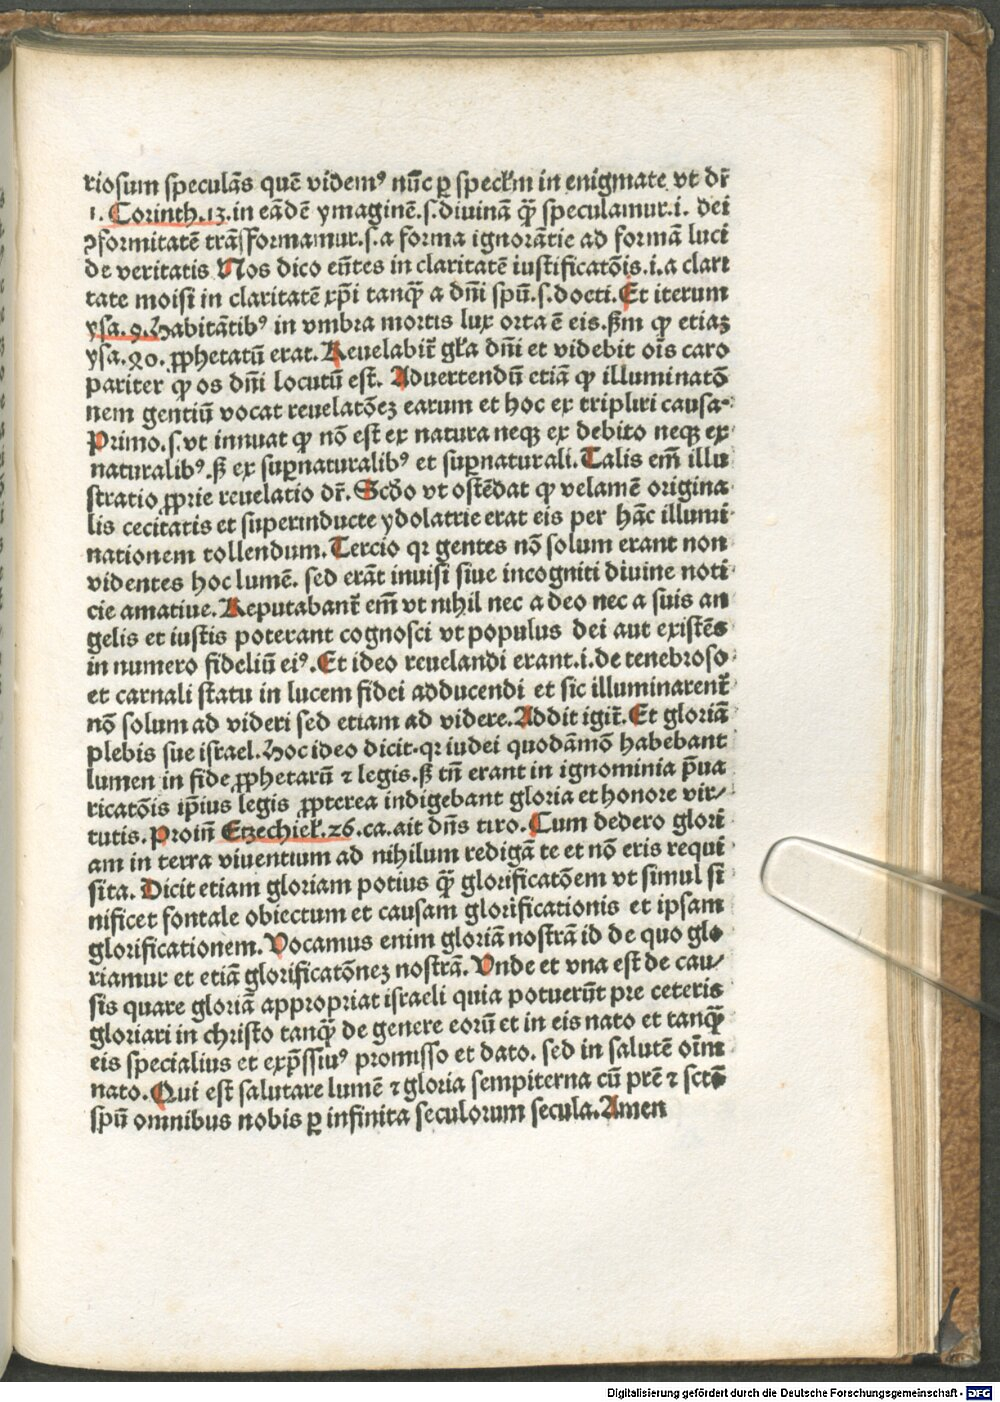 riosum speculãs quẽ videmꝰ nũc ꝑ speclm in enigmate vt dr̃
1. Corinth.13.in eãdẽ ymaginẽ.s.diuinã q̃ȝ speculamur.i. dei
ꝯformitatẽ trãsformamur.s.a forma ignorãtie ad formã luci
de veritatis Nos dico eũtes in claritatẽ iustificatõis.i.a clari
tate moisi in claritatẽ xp̃i tanq̃ȝ a dñi spũ.s.docti.Et iterum
ysa.9.Habitãtibꝰ in vmbra mortis lux orta ẽ eis.ẞm qꝫ etiaȝ
ysa.40.ꝓphetatũ erat.Reuelabit̃ gl̃a dñi et videbit oĩs caro
pariter qꝫ os dñi locutũ est. Aduertendũ etiã qꝫ illuminatõ
nem gentiũ vocat reuelatõeȝ earum et hoc ex triplici causa.
Primo.s.vt innuat qꝫ nõ est ex natura neqꝫ ex debito neqꝫ ex
naturalibꝰ.ẞ ex suꝑnaturalibꝰ et suꝑnaturali.Talis em̃ illu
stratio ꝓprie reuelatio dr̃.Scd̃o vt ostẽdat qꝫ velamẽ origina
lis cecitatis et superinducte ydolatrie erat eis per hãc illumi
nationem tollendum.Tercio qꝛ gentes nõ solum erant non
videntes hoc lumẽ. sed erãt inuisi siue incogniti diuine noti
cie amatiue.Reputabant̃ em̃ vt nihil nec a deo nec a suis an
gelis et iustis poterant cognosci vt populus dei aut existẽs
in numero fideliũ eiꝰ.Et ideo reuelandi erant.i.de tenebroso
et carnali statu in lucem fidei adducendi et sic illuminarent̃
nõ solum ad videri sed etiam ad videre.Addit igit̃.Et gloriã
plebis sue israel.Hoc ideo dicit.qꝛ iudei quodãmõ habebant
lumen in fide ꝓphetarũ ⁊ legis.ẞ tñ erant in ignominia p̃ua
ricatõis ip̃ius legis ꝓpterea indigebant gloria et honore vir/
tutis.Proiñ Etzechiel̃.26.ca.ait dñs tiro.Cum dedero glori
am in terra viuentium ad nihilum redigã te et nõ eris requi
sita. Dicit etiam gloriam potius q̃ȝ glorificatõem vt simul si
nificet fontale obiectum et causam glorificationis et ipsam
glorificationem.Vocamus enim gloriã nostrã id de quo glo
riamur et etiã glorificatõneȝ nostrã.Vnde et vna est de cau/
sis quare gloriã appropriat israeli quia potuerũt pre ceteris
gloriari in christo tanq̃ȝ de genere eorũ et in eis nato et tanq̃ȝ
eis specialius et exp̃ssiuꝰ promisso et dato. sed in salutẽ oĩm
nato.Qui est salutare lumẽ ⁊ gloria sempiterna cũ prẽ ⁊ sctõ
spũ omnibus nobis ꝑ infinita seculorum secula.Amen
Digitalisierung gefördert durch die Deutsche Forschungsgemeinschaft - DFG